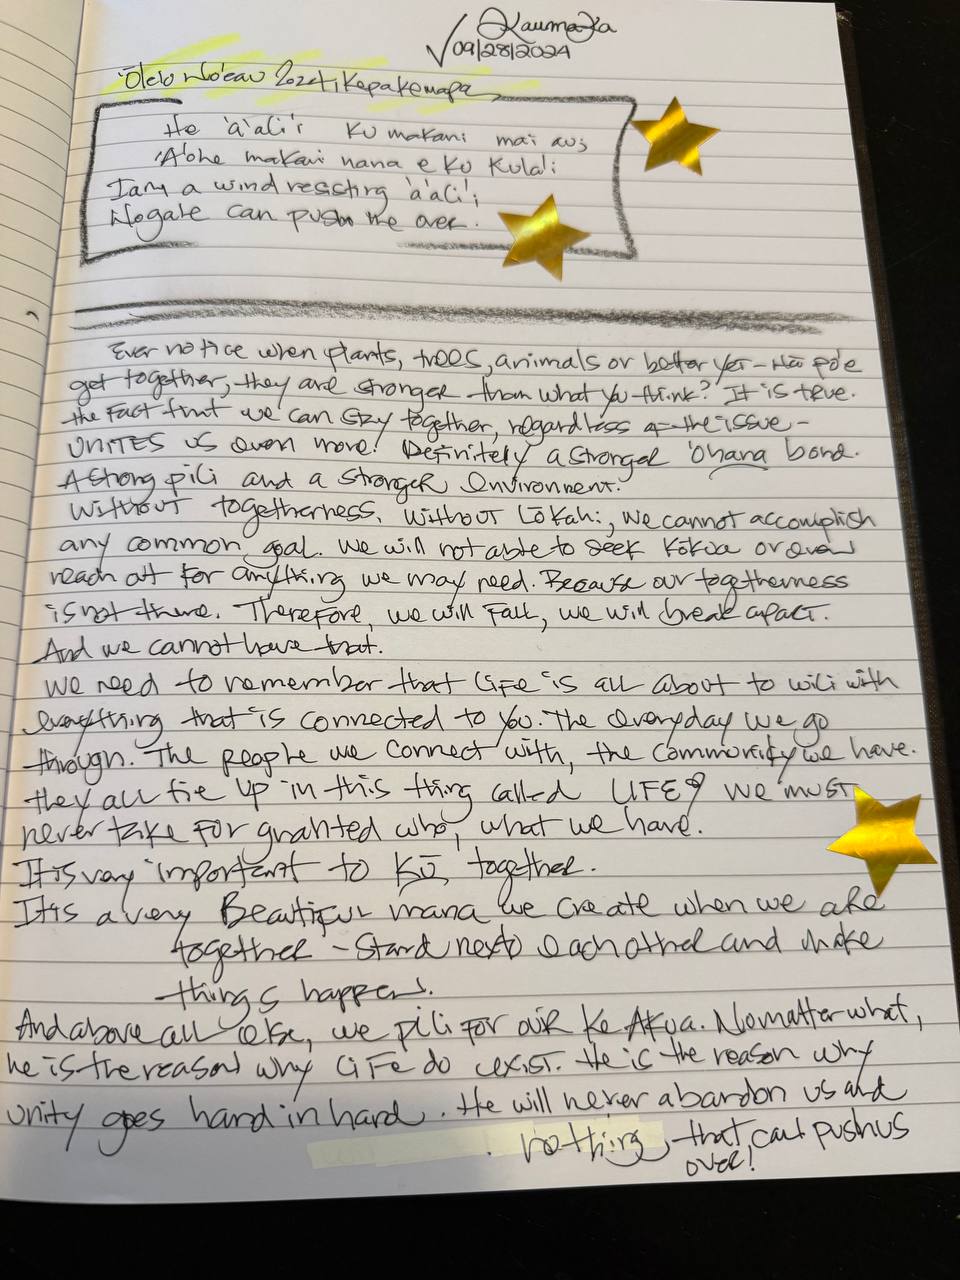 Kaumaka
09/28/2024
'Ōlelo No'eau 2024: Kepakemapa
He 'a'ali'i kū makani mai au;
'A'ohe makani nana e kū kula'i
I am a wind resisting 'a'ali'i
No gale can push me over.
Ever notice when plants, trees, animals or better yet - Ha po'e
get together, they are stronger than what you think? It is true.
the fact that we can stay together, regardless of the issue -
UNITES us even more! Definitely a stronger 'Ohana bond.
A strong pili and a stronger environment.
Without togetherness, without Lōkahi, we cannot accomplish
any common goal. We will not able to seek Kōkua or even
reach out for anything we may need. Because our togetherness
is not there. Therefore, we will fall, we will break apart.
And we cannot have that.
We need to remember that life is all about to wili with
everything that is connected to you. The everyday we go
through. The people we connect with, the community we have.
they all tie up in this thing called LIFE! We must
never take for granted who, what we have.
It is very important to KŪ, together.
It is a very Beautiful mana we create when we are
together - Stand next to each other and make
things happen.
And above all else, we pili for our Ke Akua. No matter what,
he is the reason why life do exist. He is the reason why
unity goes hand in hand. He will never abandon us and
nothing, that can push us
over!